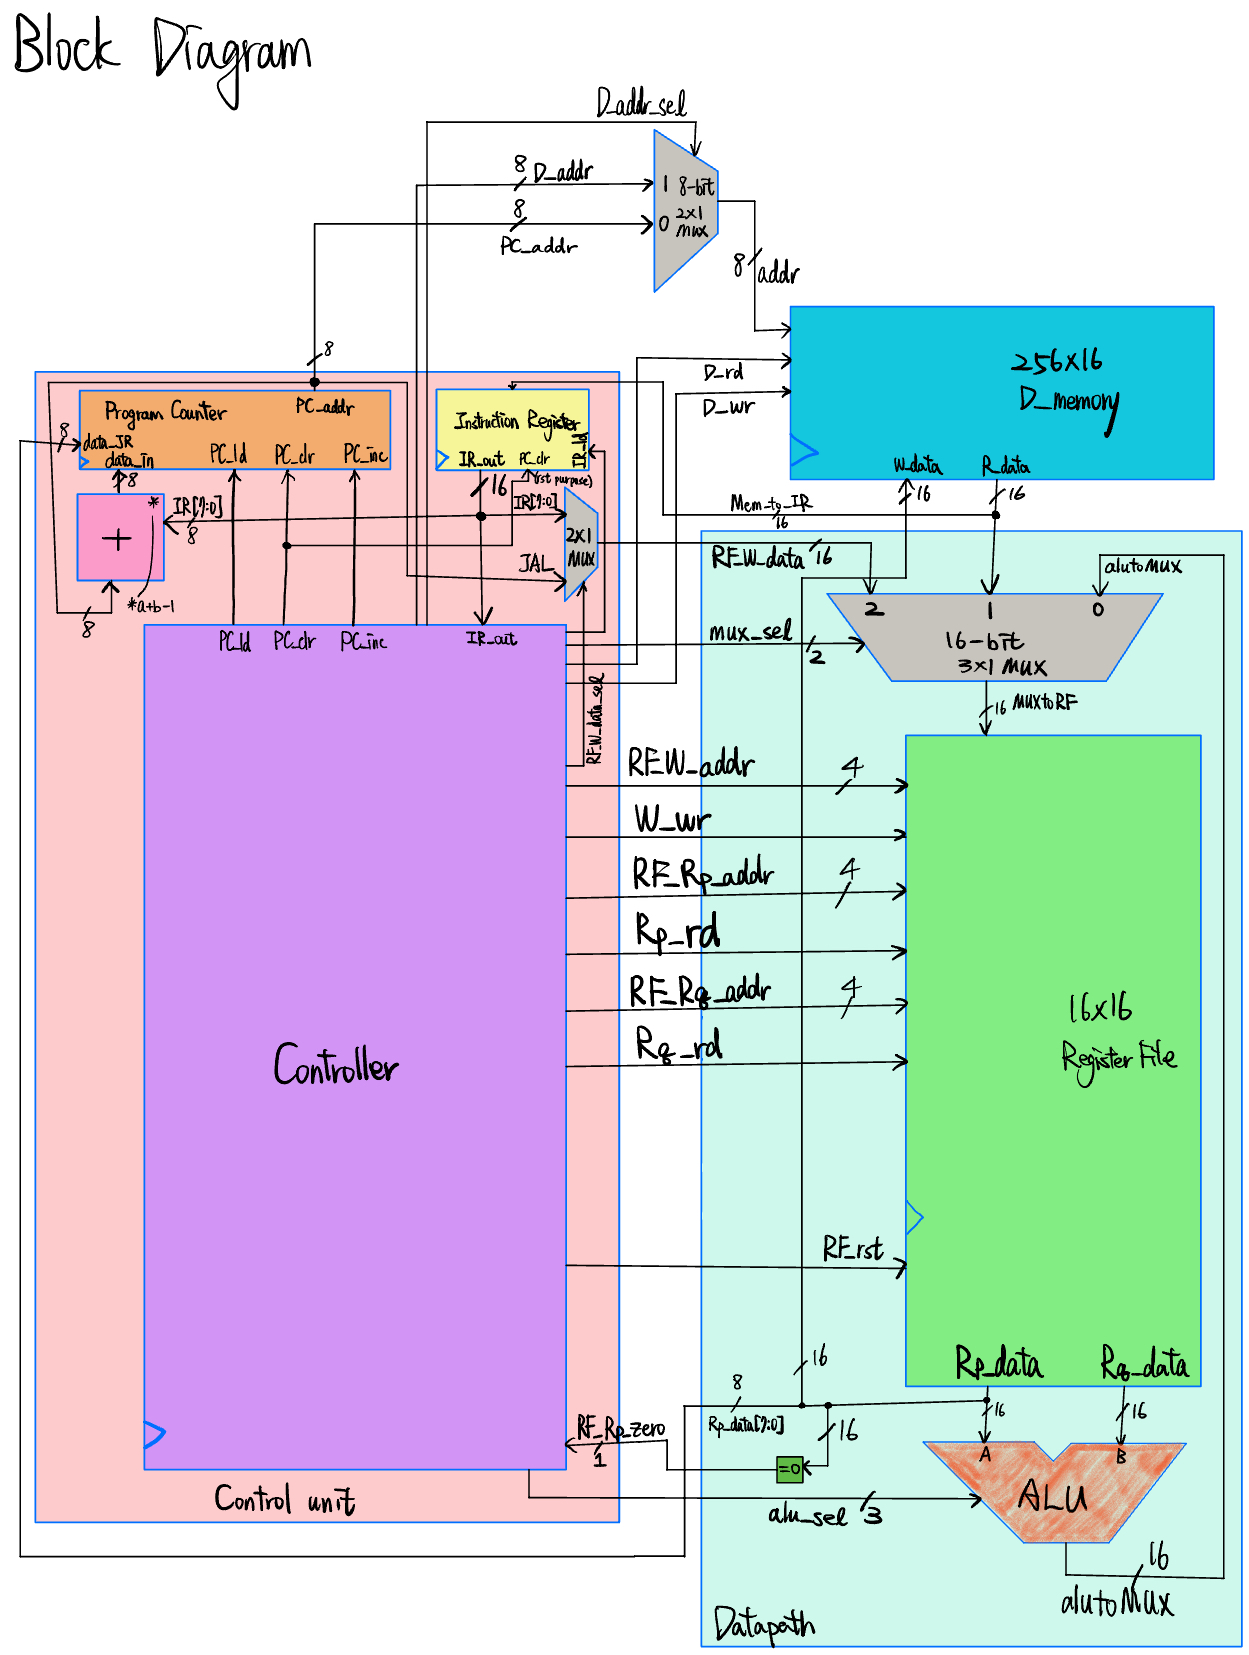 Block Diagram
D_addr_sel
8
D_addr
1
8-bit
2x1
Mux
8
0
PC_addr
8
addr
8
256x16
D_memory
D_rd
D_wr
W_data
R_data
16
16
Program Counter
PC_addr
8
data_JR
data_in
PC_ld
PC_clr
PC_inc
Instruction Register
IR_ld
IR_out
PC_clr
(rst purpose)
8
16
*
IR[7:0]
8
+
*a+b-1
8
IR[7:0]
2x1
Mux
JAL
Mem_to_IR
16
RF_W_data
16
alutoMUX
2
1
0
16-bit
3x1 Mux
mux_sel
2
16
MUXtoRF
PC_ld
PC_clr
PC_inc
IR_out
RF_W_data_sel
RF_W_addr
4
W_wr
RF_Rp_addr
4
Rp_rd
RF_Rq_addr
4
Rq_rd
16x16
Register File
Controller
RF_rst
Rp_data
Rq_data
16
8
Rp_data[7:0]
16
16
16
RF_Rp_zero
1
=0
A
B
ALU
alu_sel
3
Control unit
16
alutoMUX
Datapath